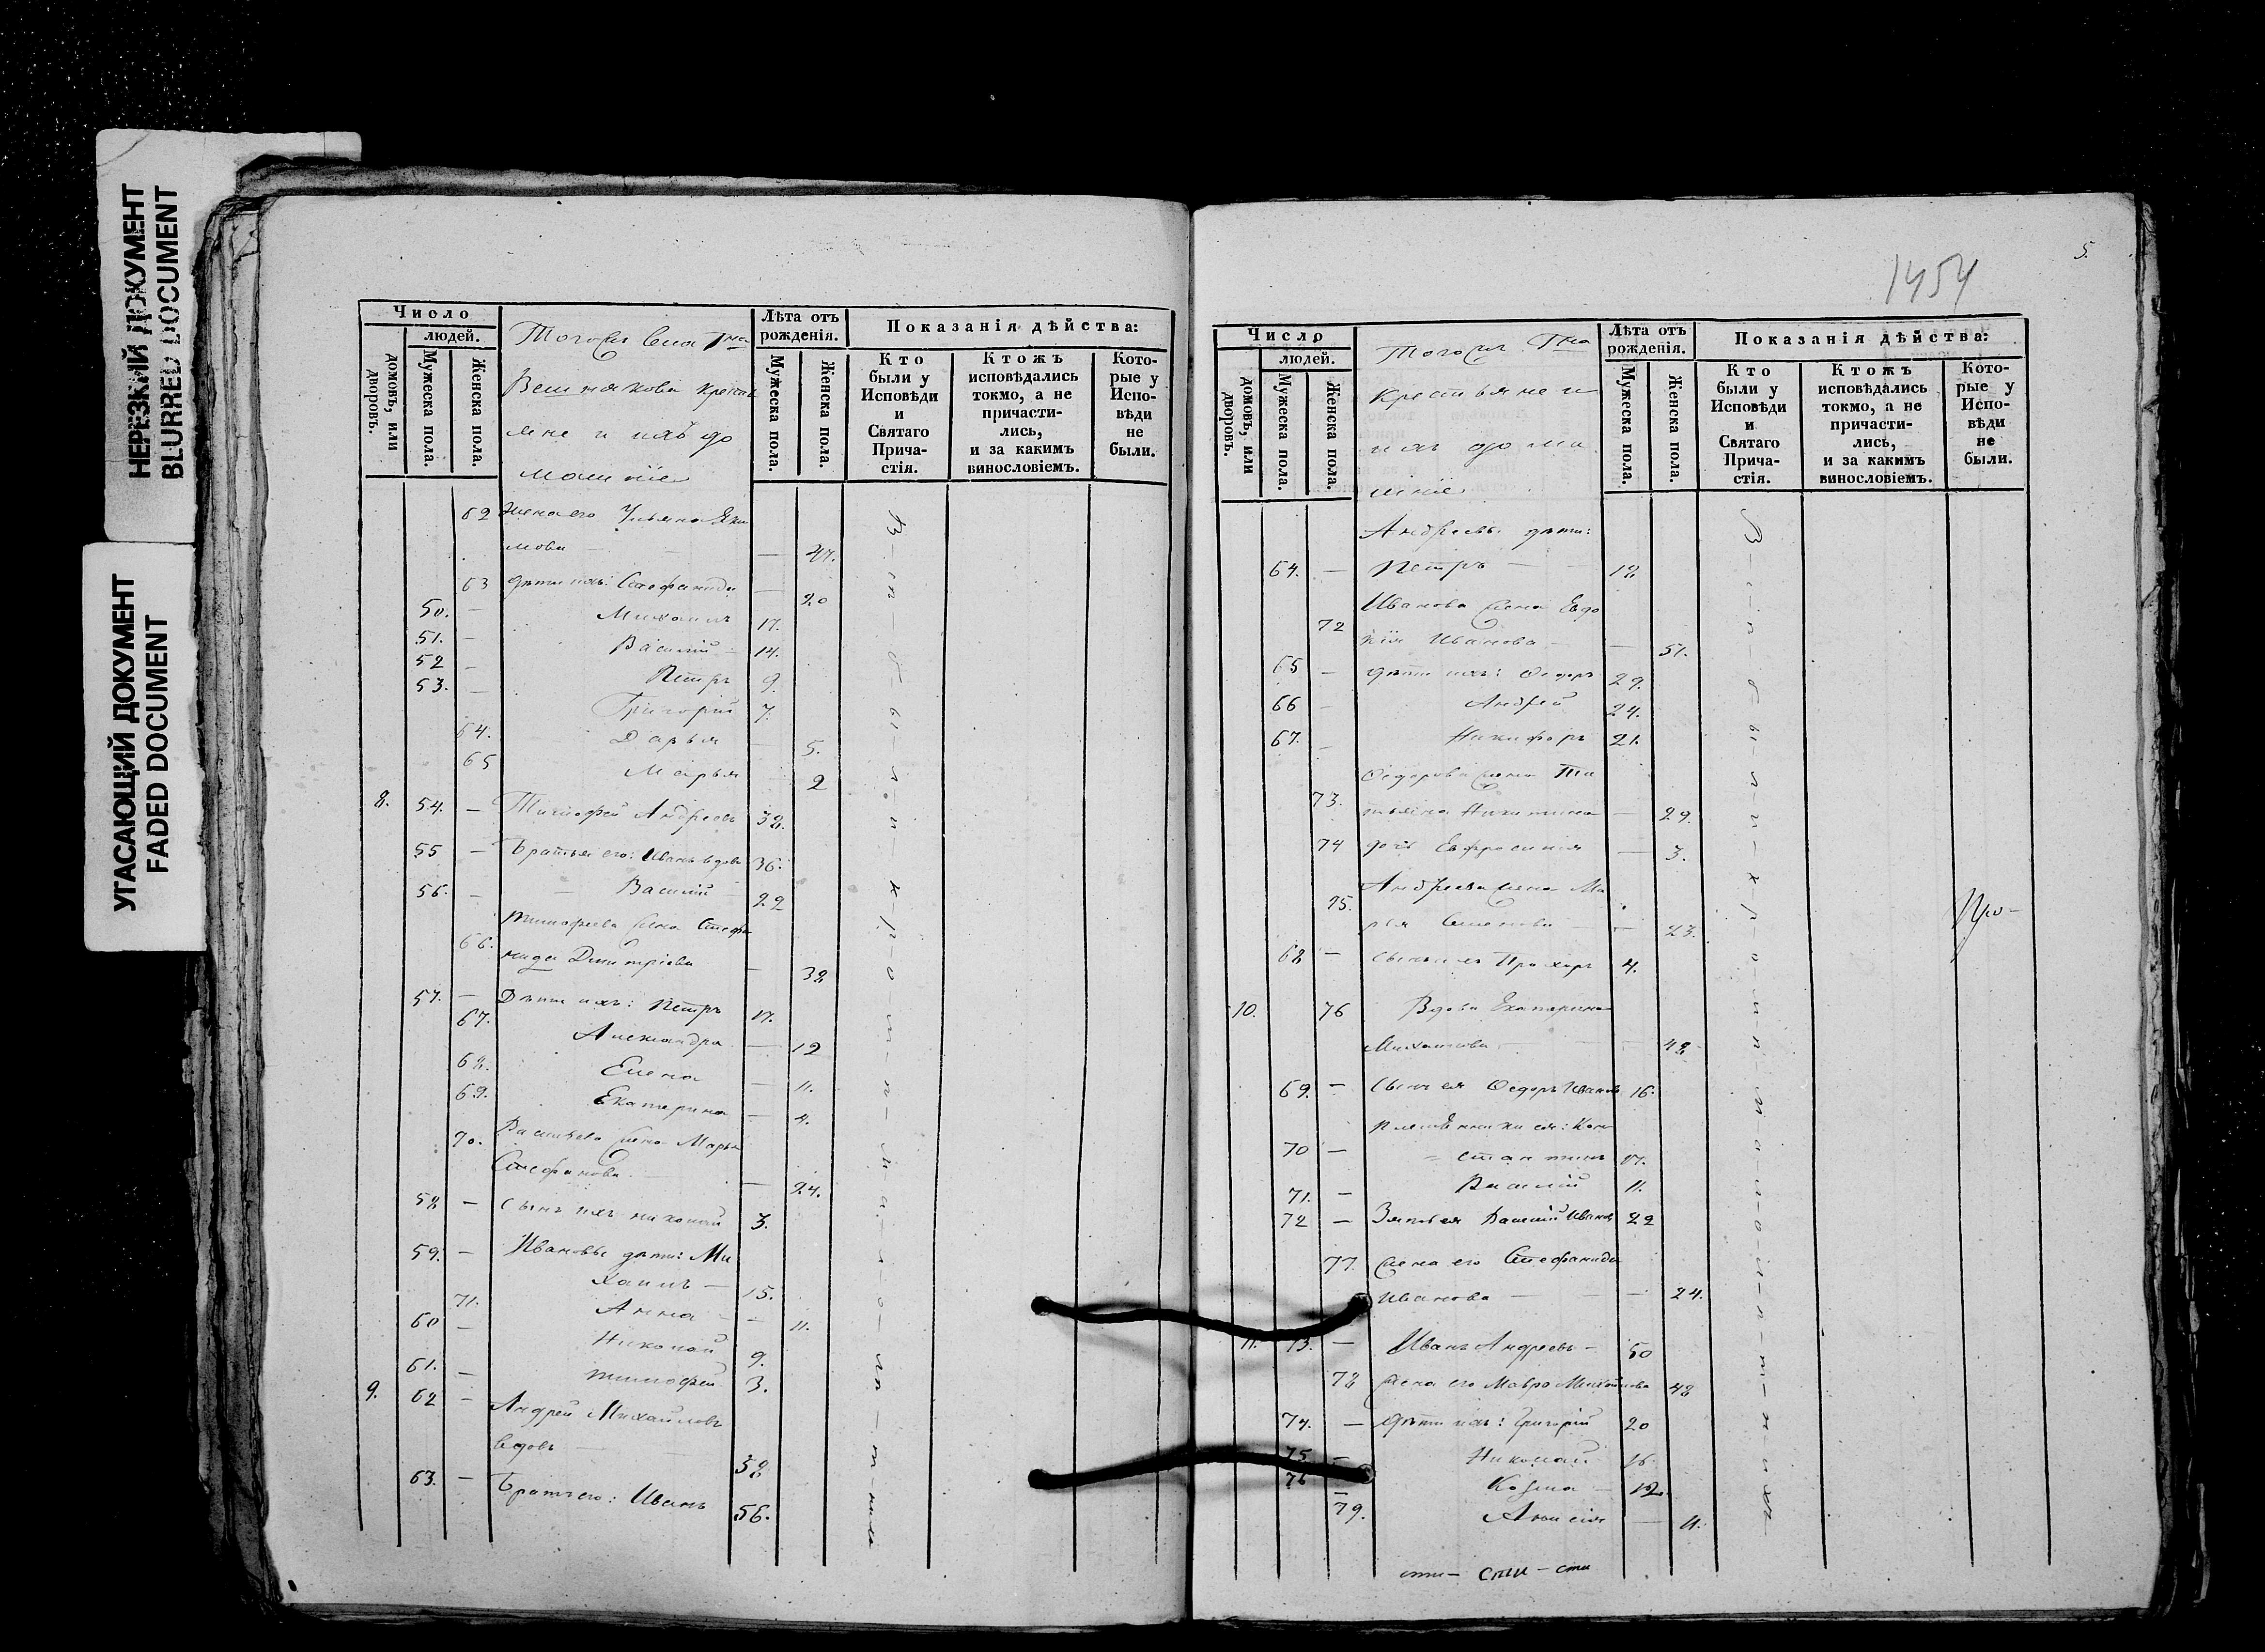 НЕРЕЗКИЙ ДОКУМЕНТ
BLURRED DOCUMENT
УГАСАЮЩИЙ ДОКУМЕНТ
FADED DOCUMENT
Число
людей.
домовъ, или дворовъ.
Мужеска пола.
Женска пола.
Тогожъ села Гна
Вешнякова крестья
яне и ихъ до
машніе
Лѣта отъ рожденія.
Мужеска пола.
Женска пола.
Показанія дѣйства:
Кто были у Исповѣди и Святаго Прича- стія.
Ктожъ исповѣдались токмо, а не причасти- лись, и за какимъ винословіемъ.
Кото- рые у Испо- вѣди не были.
62 Жена его Ульяна Яки
мова — — 47.
63 дѣти ихъ: Стефанида — 20
50. — Михаилъ 17.
51. — Василій 14.
52 — Петръ 9.
53. — Григорій 7.
64. Дарья — 5.
65 Марья — 2
8. 54. — Тимофей Андреевъ 38.
55 — Братья его: Иванъ вдовъ 36.
56. — Василій 22
66. Тимофеева жена Стефа
нида Дмитріева — 38
57. — Дѣти ихъ: Петръ 17.
67. Александра — 12
68. Елена — 11.
69. Екатерина — 4.
70. Васильева жена Марья
Стефанова — 24.
58 — Сынъ ихъ Николай 3.
59. — Ивановы дѣти: Ми
хаилъ — 15.
71. Анна — 11.
60 — Николай 9.
61. — Тимофей 3.
9. 62 — Андрей Михайловъ
вдовъ — 58
63. — Братъ его: Иванъ 56.
1454
5.
Число
людей.
домовъ, или дворовъ.
Мужеска пола.
Женска пола.
Тогожъ Гна
крестьяне и
ихъ дома
шніе
Лѣта отъ рожденія.
Мужеска пола.
Женска пола.
Показанія дѣйства:
Кто были у Исповѣди и Святаго Прича- стія.
Ктожъ исповѣдались токмо, а не причасти- лись, и за какимъ винословіемъ.
Кото- рые у Испо- вѣди не были.
Андреевы дѣти:
64. — Петръ — 18
Иванова жена Евдо
72 кія Иванова — 51.
65 — дѣти ихъ: Ѳедоръ 29.
66 — Андрей 24.
67. — Никифоръ 21.
Ѳедорова жена Та
73. тьяна Никитина — 29.
74 дочь Евфросинія — 3.
Андреева жена Ма
75. рья Семенова — 23.
68 — Сынъ ихъ Прохоръ 4.
10. 76 Вдова Екатерина
Михайлова — 48
69. — Сынъ ея Ѳедоръ Ивановъ 16.
Племѣнники ея: Кон
70 — стантинъ 17.
71. — Василій 11.
72 — Зять ея Василій Ивановъ 22
77. Жена его Стефанида
Иванова — 24.
11. 73. — Иванъ Андреевъ — 50
78 Жена его Мавра Михайлова 48
74. — дѣти ихъ: Григорій 20
75 — Николай 16.
76 — Козма — 12.
79. Анисія — 11.